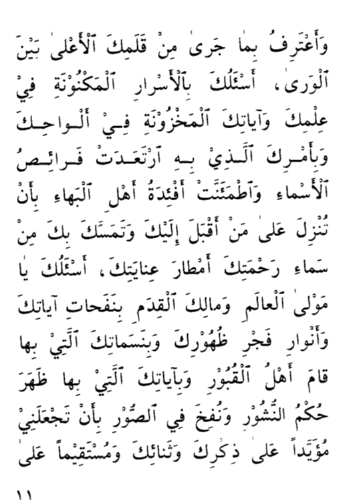 وَأَعْتَرِفُ بِمٰا جَرىٰ مِنْ قَلَمِكَ ٱلْأَعْلىٰ بَيْنَ
ٱلْوَرىٰ، أَسْئَلُكَ بِٱلْأَسْرارِ ٱلْمَكْنُوْنَةِ فِيْ
عِلْمِكَ وَآياتِكَ ٱلْمَخْزُوْنَةِ فِيْ أَلْواحِكَ
وَبِأَمْرِكَ ٱلَّذِيْ بِهِ ٱرْتَعَدَتْ فَرائِصُ
ٱلْأَسْماءِ وَٱطْمَئَنَّتْ أَفْئِدَةُ أَهْلِ ٱلْبَهاءِ بِأَنْ
تُنْزِلَ عَلىٰ مَنْ أَقْبَلَ إِلَيْكَ وَتَمَسَّكَ بِكَ مِنْ
سَماءِ رَحْمَتِكَ أَمْطارَ عِنايَتِكَ، أَسْئَلُكَ يٰا
مَوْلىٰ ٱلْعالَمِ وَمالِكَ ٱلْقِدَمِ بِنَفَحاتِ آياتِكَ
وَأَنْوارِ فَجْرِ ظُهُوْرِكَ وَبِنَسَماتِكَ ٱلَّتِيْ بِها
قامَ أَهْلُ ٱلْقُبُوْرِ وَبِآياتِكَ ٱلَّتِيْ بِها ظَهَرَ
حُكْمُ ٱلنُّشُوْرِ وَنُفِخَ فِي ٱلصُّوْرِ بِأَنْ تَجْعَلَنِيْ
مُؤَيَّداً عَلىٰ ذِكْرِكَ وَثَنائِكَ وَمُسْتَقِيْماً عَلىٰ
١١